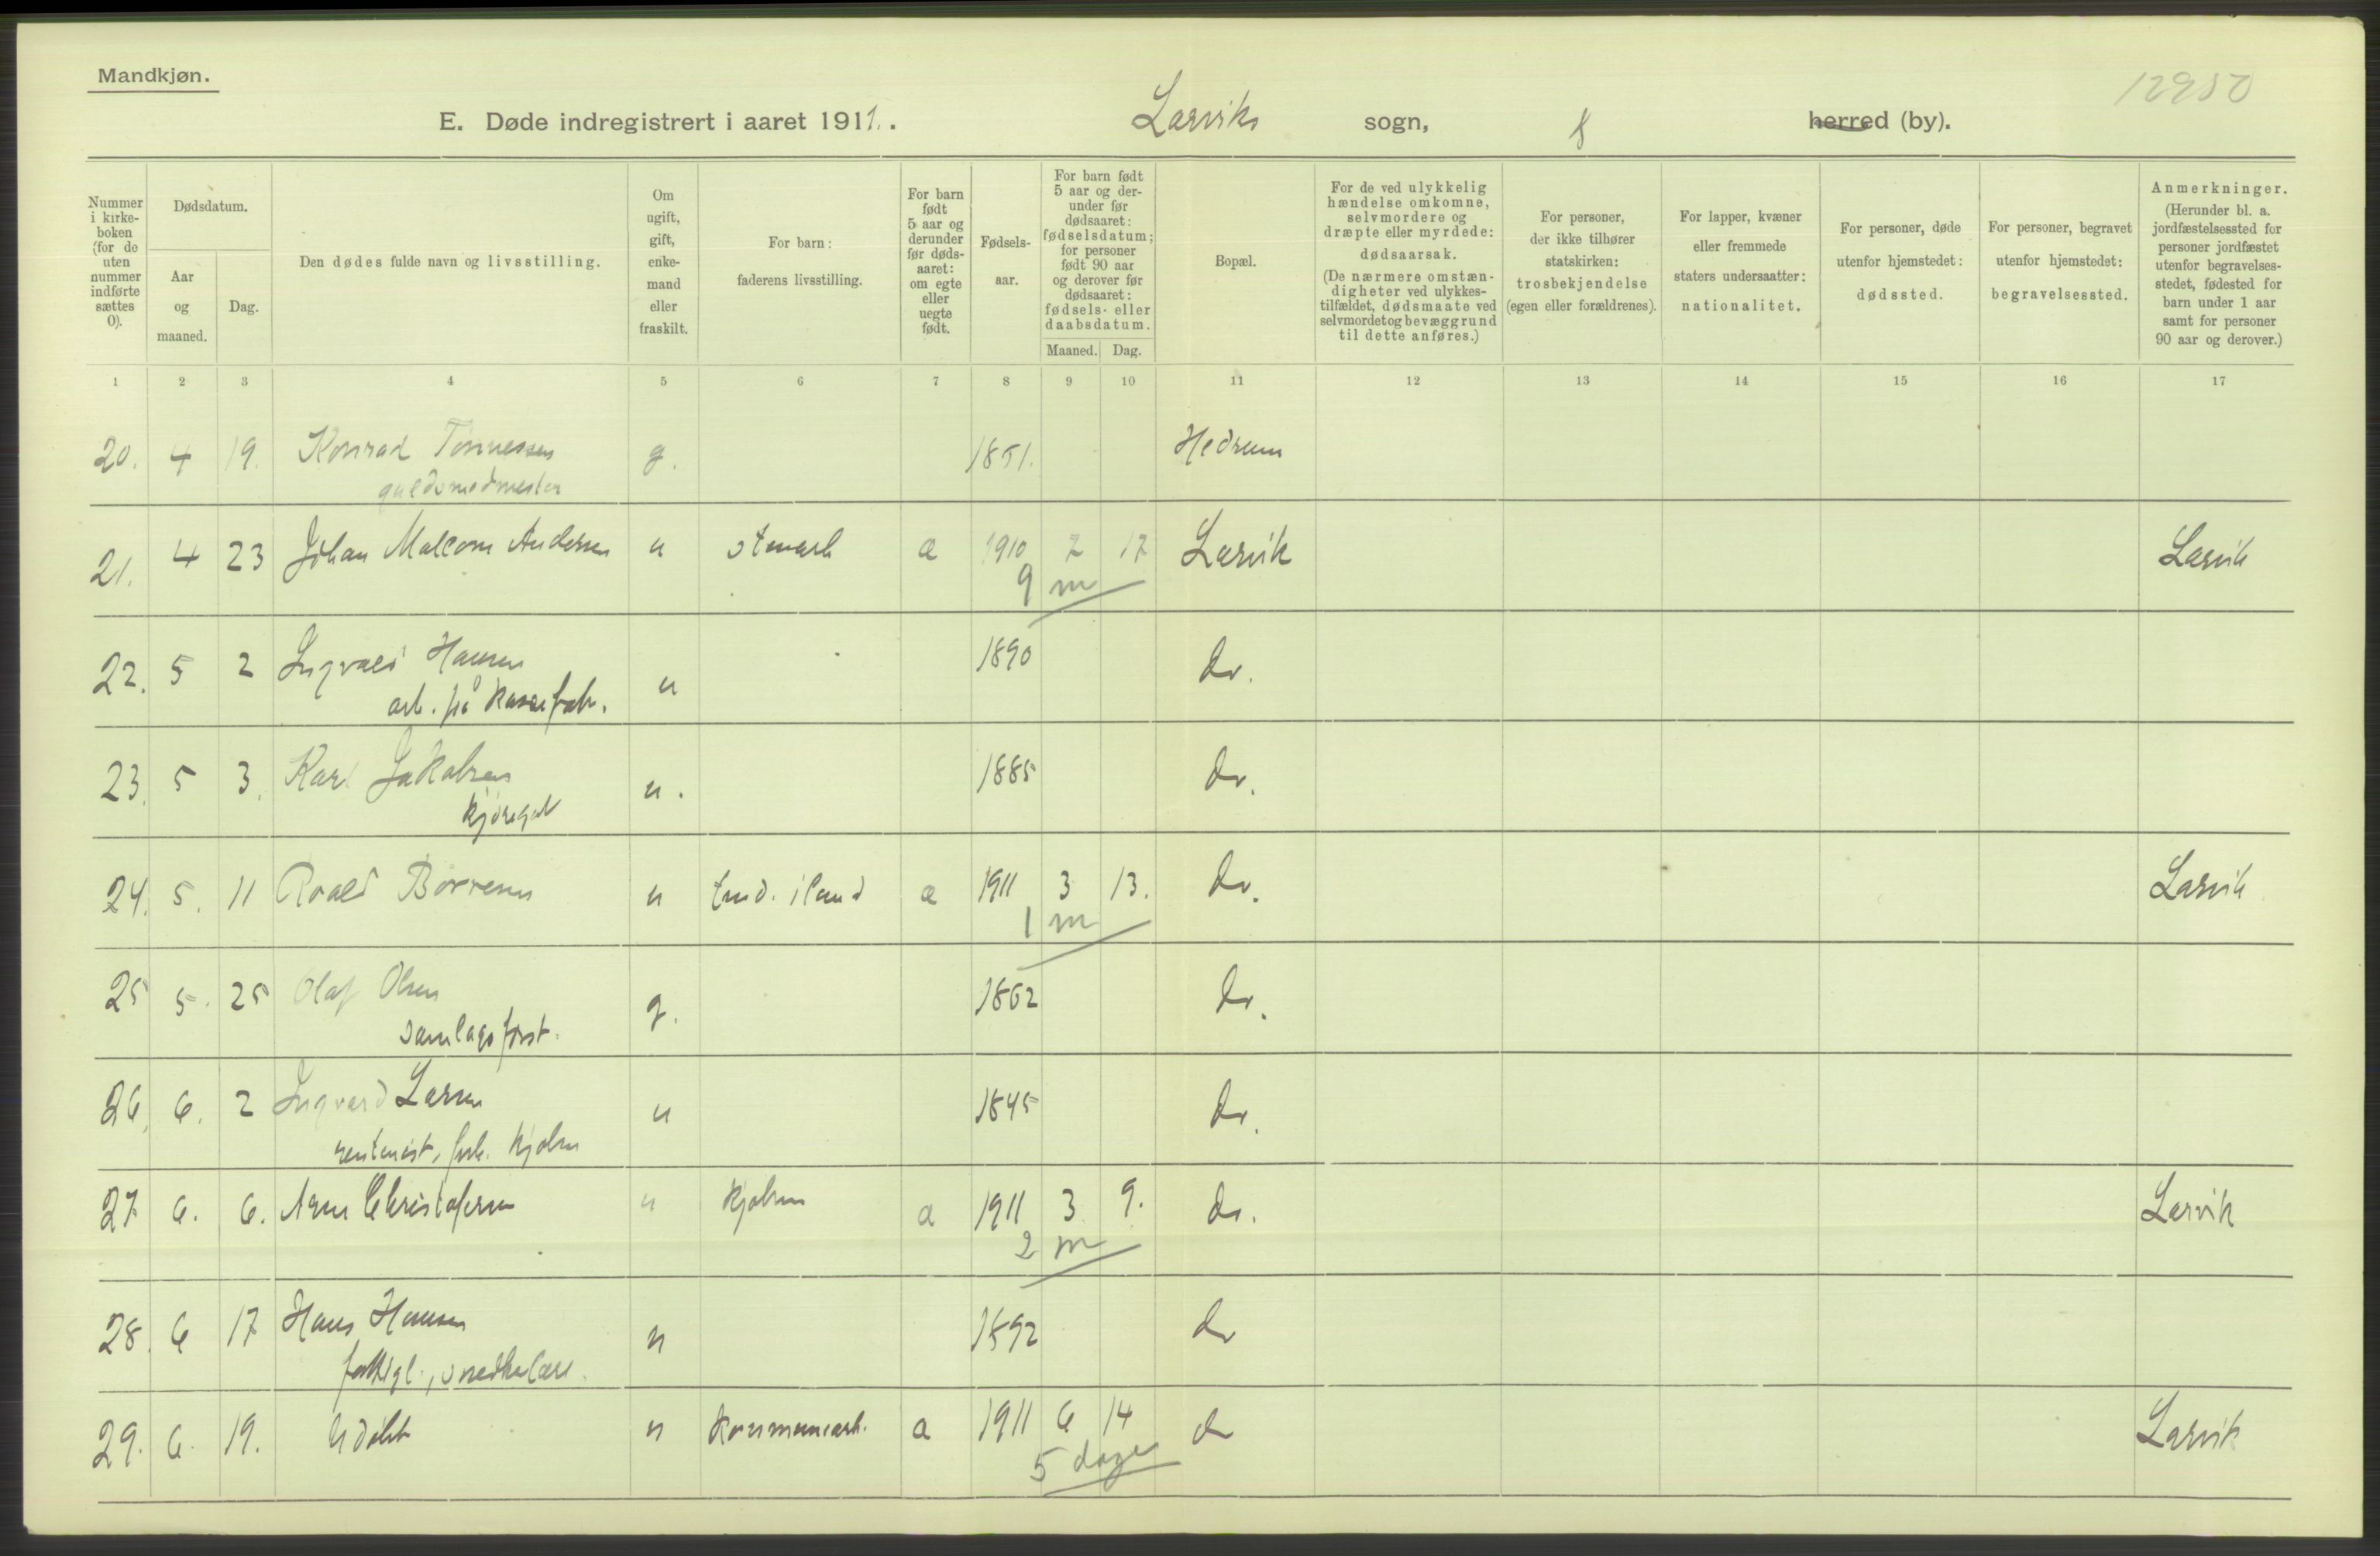 Mandkjøn.
12950
E. Døde indregistrert i aaret 1911. Larviks sogn, herred (by).
Nummer i kirke-boken (for de uten nummer indførte sættes 0).
Dødsdatum.
Aar og maaned.
Dag.
Den dødes fulde navn og livsstilling.
Om ugift, gift, enke-mand eller fraskilt.
For barn: faderens livsstilling.
For barn født 5 aar og derunder før døds-aaret: om egte eller uegte født.
Fødsels-aar.
For barn født 5 aar og der-under før dødsaaret: fødselsdatum; for personer født 90 aar og derover før dødsaaret: fødsels- eller daabsdatum.
Maaned. Dag.
Bopæl.
For de ved ulykkelig hændelse omkomne, selvmordere og dræpte eller myrdede: dødsaarsak. (De nærmere omstæn-digheter ved ulykkes-tilfældet, dødsmaate ved selvmordet og bevæggrund til dette anføres.)
For personer, der ikke tilhører statskirken: trosbekjendelse (egen eller forældrenes).
For lapper, kvæner eller fremmede staters undersaatter: nationalitet.
For personer, døde utenfor hjemstedet: dødssted.
For personer, begravet utenfor hjemstedet: begravelsessted.
Anmerkninger. (Herunder bl. a. jordfæstelsessted for personer jordfæstet utenfor begravelses-stedet, fødested for barn under 1 aar samt for personer 90 aar og derover.)
1 2 3 4 5 6 7 8 9 10 11 12 13 14 15 16 17
20. 4 19. Konrad Tønnessen g. 1851. Hedrum
guldsmedmester
21. 4 23 Johan Malcom Andersen u stuark a 1910 7 17 Larvik Larvik
9 m
22. 5 2 Ingvald Hansen u 1890 do.
arb. på kassefabr.
23. 5 3. Karl Jakobsen u. 1885 do.
kjøregut
24. 5. 11 Roald Børresen u tmd. iland a 1911 3 13. do. Larvik
1 m
25 5. 25 Olaf Olsen g. 1862 do.
samlagsforst.
26. 6. 2 Ingvard Larsen u 1845 do.
rentenist, forh. kjøbm
27 6. 6. Arne Christofersen u kjøbm a 1911 3 9. do. Larvik
2 m
28. 6 17 Hans Hansen u 1892 do
fattigl., snedkerlære.
29. 6. 19. Udøbt u kommunearb. a 1911 6 14 do Larvik
5 dage